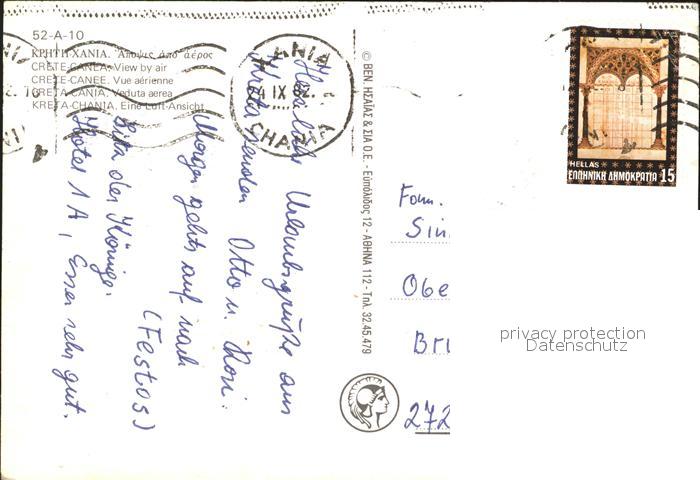 52-A-10
ΚΡΗΤΗ-ΧΑΝΙΑ. Ἄποψις ἀπό ἀέρος
CRETE-CANEA. View by air
CRETE-CANEE. Vue aérienne
CRETA-CANIA. Veduta aerea
KRETA-CHANIA. Eine Luft-Ansicht
ΧΑΝΙΑ
IX 82
CHANIA
Herzliche Urlaubsgrüße aus
Kreta senden Otto u. Rosi.
Morgen gehts auf nach
(Festos)
Sitz der Könige.
Hotel 1A, Essen sehr gut.
© ΒΕΝ ΗΣΑΪΑΣ & ΣΙΑ Ο.Ε. - Εὐπόλιδος 12 - ΑΘΗΝΑ 112 - Τηλ. 32.45.479
HELLAS
ΕΛΛΗΝΙΚΗ ΔΗΜΟΚΡΑΤΙΑ 15
Fam.
Sin
Obe
Bri
272
privacy protection
Datenschutz